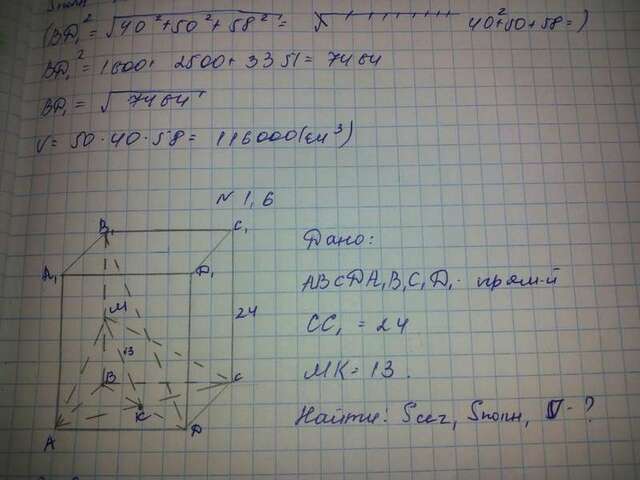 (BD₁² = √40²+50²+58² = √ 40²+50+58=)
BD₁² = 1600+ 2500+ 3351= 7464
BD₁ = √7464
V= 50·40·58= 116000(см³)
N 1,6
B₁
C₁
A₁
D₁
24
M
13
B
C
K
A
D
Дано:
ABCDA₁B₁C₁D₁- прям-й
CC₁ = 24
MK= 13.
Найти: Sсег, Sполн, V- ?